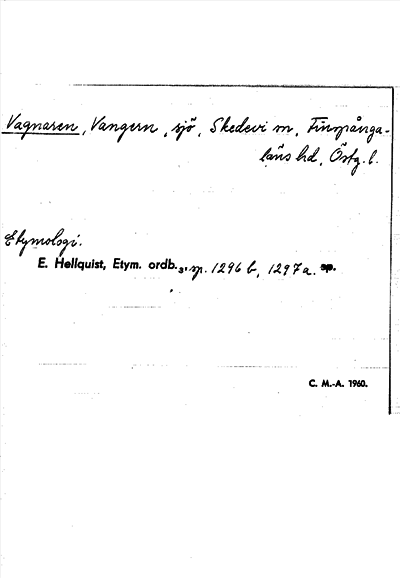 Vagnaren, Vangern, sjö, Skedevi sn, Finspånga-
läns hd, Östg. l.
Etymologi.
E. Hellquist, Etym. ordb.3, sp. 1296 b, 1297 a. sp.
C. M.-A. 1960.